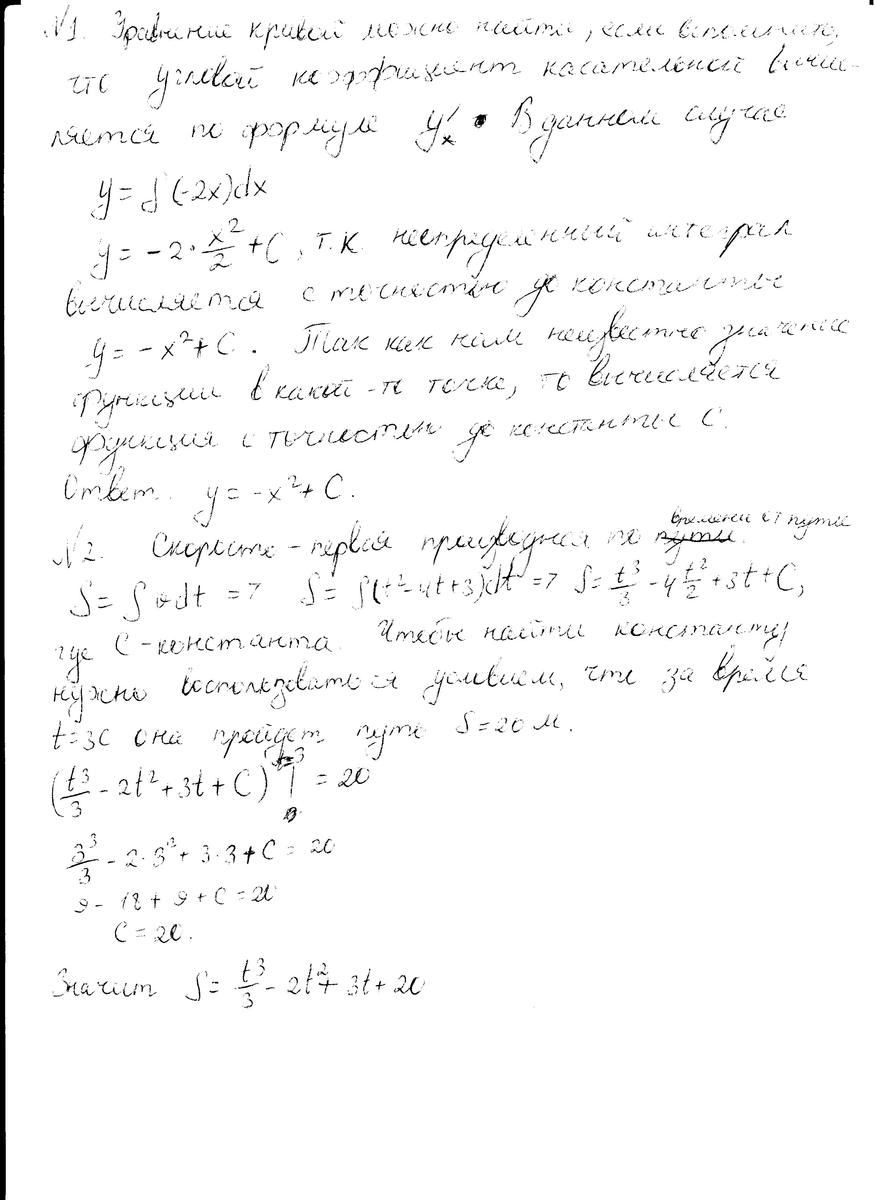 N1. Уравнение кривой можно найти, если вспомнить,
что угловой коэффициент касательной вычис-
ляется по формуле y'ₓ. В данном случае
y = ∫(-2x)dx
y = -2·x²/2 + C, т.к. неопределенный интеграл
вычисляется с точностью до константы
y = -x² + C. Так как нам неизвестно значение
функции в какой-то точке, то вычисляется
функция с точностью до константы C.
Ответ. y = -x² + C.
N2. Скорость - первая производная по времени от пути.
S = ∫vdt => S = ∫(t²-4t+3)dt => S = t³/3 - 4 t²/2 + 3t + C,
где C - константа. Чтобы найти константу,
нужно воспользоваться условием, что за время
t=3с она пройдет путь S=20 м.
(t³/3 - 2t² + 3t + C) |₀ᵗ⁼³ = 20
3³/3 - 2·3² + 3·3 + C = 20
9 - 18 + 9 + C = 20
C = 20.
Значит S = t³/3 - 2t² + 3t + 20